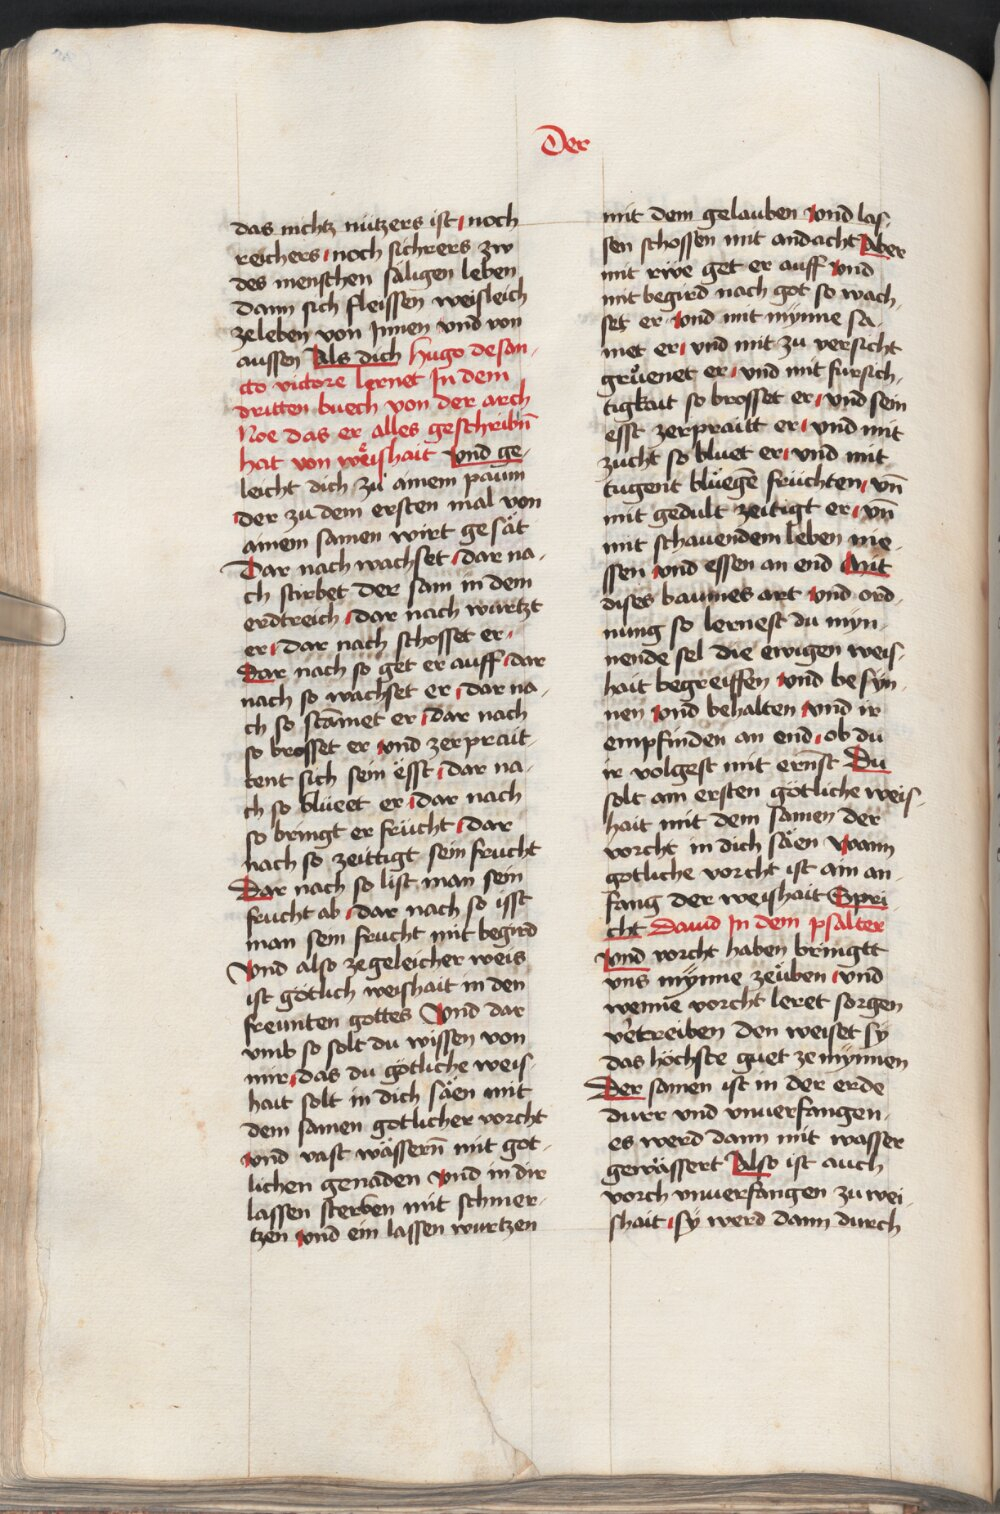 Der
das nichtz nützers ist noch
reichers noch sichrers zw
des menschen säligen leben
dann sich fleissen weisleich
zeleben von Jnnen vnd von
aussen Als dich hugo de san-
cto victore lernet Jn dem
dritten buech von der arch
Noe das er alles geschribn̄
hat von weishait vnd ge-
leicht dich zu ainem paum
der zu dem ersten mal von
ainem samen wirt gesät
Dar nach wachset dar na-
ch stirbet der sam in dem
erdtreich dar nach wurtzt
er dar nach schosset er
Dar nach so get er auff dar
nach so wachset er dar na-
ch so stāmet er dar nach
so brosset er vnd zerprait-
tent sich sein esst dar na-
ch so blüeet er dar nach
so bringt er frücht dar
nach so zeittigt sein frucht
Dar nach so list man sein
frucht ab dar nach so isst
man sein frucht mit begird
Vnd also zegeleicher weis
ist götlich weishait in den
freunten gottes Vnd dar
vmb so solt du wissen von
mir das du götliche weis-
hait solt in dich säen mit
dem samen gotlicher vorcht
vnd vast wässern̄ mit got-
lichen genaden vnd in dir
lassen sterben mit schmer-
tzen vnd ein lassen wurtzen
mit dem gelauben vnd las-
sen schossen mit andacht Aber
mit rwe get er auff vnd
mit begird nach got so wach-
set er vnd mit mynne sa-
met er vnd mit zu versicht
gruenet er vnd mit fursich-
tigkait so brosset er vnd sein
esst zerpraitt er vnd mit
zucht so bluet er vnd mit
tugent bluegē früchten vn̄
mit gedult zeitigt er vn̄
mit schauendem leben nie-
ssen vnd essen an end Mit
dises baumes art vnd ord-
nung so lernest du myn-
nende sel die ewigen weis-
hait begreiffen vnd besyn-
nen vnd behalten vnd ir
empfinden an end ob du
ir volgest mit ernst Du
solt am ersten götliche weis-
hait mit dem samen der
vorcht in dich säen wann
gotliche vorcht ist ain an-
fang der weishait Spri-
cht Dauid Jn dem psalter
Vnd vorcht haben bringtt
vns mynne zeüben vnd
wenne vorcht leret sorgen
vertreiben den weiset sy
das höchste guet ze mynnen
Der samen ist in der erde
durr vnd vnuerfangen
es werd dann mit wasser
gewässert Also ist auch
vorch vnuerfangen zu wei-
shait sy werd dann durch